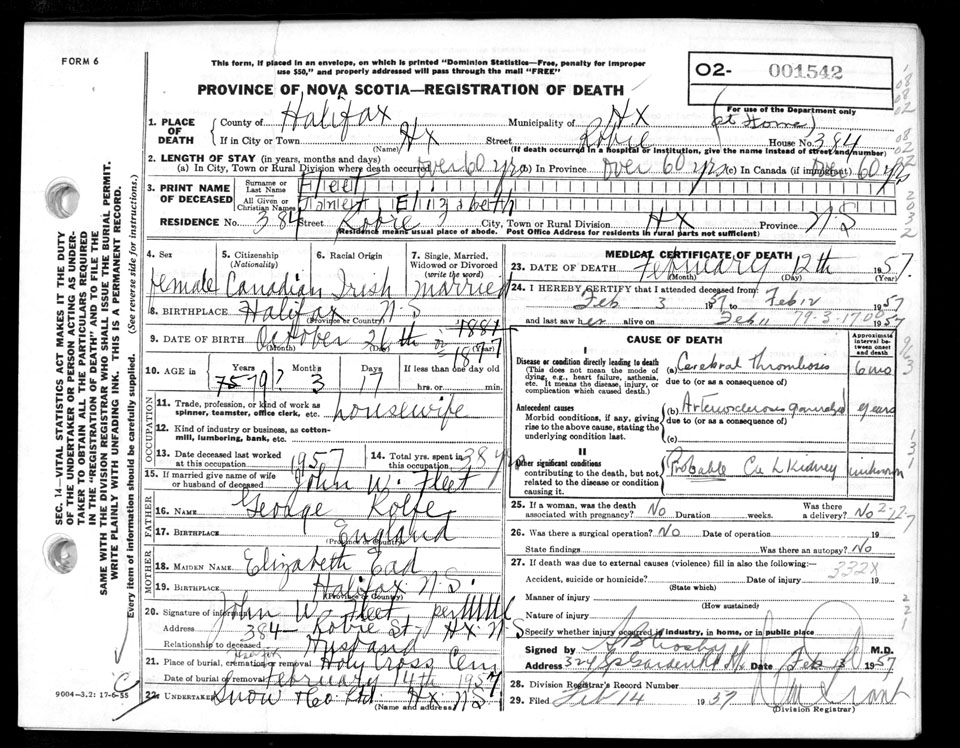 FORM 6
This form, if placed in an envelope, on which is printed "Dominion Statistics—Free, penalty for improper
use $50," and properly addressed will pass through the mail "FREE"
O2- 001542
PROVINCE OF NOVA SCOTIA—REGISTRATION OF DEATH
For use of the Department only
1. PLACE OF DEATH
County of Halifax Municipality of Hx (at Home)
If in City or Town Hx Street Robie House No. 384
(Name) (If death occurred in a hospital or institution, give the name instead of street and number)
2. LENGTH OF STAY (in years, months and days)
(a) In City, Town or Rural Division where death occurred over 60 yrs (b) In Province over 60 yrs (c) In Canada (if immigrant) over 60 yrs
3. PRINT NAME OF DECEASED
Surname or Last Name Fleet
All Given or Christian Names Elizabeth
RESIDENCE No. 384 Street Robie City, Town or Rural Division Hx Province N.S
(Residence means usual place of abode. Post Office Address for residents in rural parts not sufficient)
4. Sex 5. Citizenship (Nationality) 6. Racial Origin 7. Single, Married, Widowed or Divorced (write the word)
Female Canadian Irish married
8. BIRTHPLACE Halifax N.S
(Province or Country)
9. DATE OF BIRTH October 26th 1881 or 1877
(Month) (Day) (Year)
10. AGE in Years 75 79? Months 3 Days 17 If less than one day old
hrs. or min.
OCCUPATION
11. Trade, profession, or kind of work as spinner, teamster, office clerk, etc. housewife
12. Kind of industry or business, as cotton-mill, lumbering, bank, etc.
13. Date deceased last worked at this occupation 1957 14. Total yrs. spent in this occupation 38 yrs
15. If married give name of wife or husband of deceased John W. Fleet
FATHER
16. NAME George Rolfe
17. BIRTHPLACE England
(Province or Country)
MOTHER
18. MAIDEN NAME Elizabeth
19. BIRTHPLACE Halifax N.S.
(Province or Country)
20. Signature of informant John W. Fleet per
Address 384 Robie St. Hx. N.S
Relationship to deceased Husband
21. Place of burial, cremation or removal Holy Cross Cem
Date of burial or removal February 14th 1957
22. UNDERTAKER Snow & Co Ltd. Hx. N.S
(Name and address)
MEDICAL CERTIFICATE OF DEATH
23. DATE OF DEATH February 12th 1957.
(Month) (Day) (Year)
24. I HEREBY CERTIFY that I attended deceased from
Feb 3 1957 to Feb 12 1957
and last saw her alive on Feb 11 1957
79-3-1700
CAUSE OF DEATH
Approximate interval between onset and death
I
Disease or condition directly leading to death
(This does not mean the mode of dying, e.g., heart failure, asthenia, etc. It means the disease, injury, or complication which caused death.)
(a) Cerebral Thrombosis 6 mo
due to (or as a consequence of)
Antecedent causes
Morbid conditions, if any, giving rise to the above cause, stating the underlying condition last.
(b) Arteriosclerosis generalized years
due to (or as a consequence of)
(c)
II
Other significant conditions
contributing to the death, but not related to the disease or condition causing it.
Probable Ca L Kidney unknown
25. If a woman, was the death associated with pregnancy? No Duration weeks. Was there a delivery? No
26. Was there a surgical operation? No Date of operation 19
State findings Was there an autopsy? No
27. If death was due to external causes (violence) fill in also the following:—
332X
Accident, suicide or homicide? Date of injury 19
(State which)
Manner of injury
(How sustained)
Nature of injury
Specify whether injury occurred in industry, in home, or in public place
Signed by M.D.
Address 324 Date Feb 13 1957
28. Division Registrar's Record Number
29. Filed Feb 14 1957
(Division Registrar)
SEC. 14—VITAL STATISTICS ACT MAKES IT THE DUTY
OF THE UNDERTAKER OR PERSON ACTING AS UNDER-
TAKER TO OBTAIN ALL THE PARTICULARS REQUIRED
IN THE "REGISTRATION OF DEATH" AND TO FILE THE
SAME WITH THE DIVISION REGISTRAR WHO SHALL ISSUE THE BURIAL PERMIT.
WRITE PLAINLY WITH UNFADING INK. THIS IS A PERMANENT RECORD.
Every item of information should be carefully supplied. (See reverse side for instructions.)
9004-3.2: 17-6-55